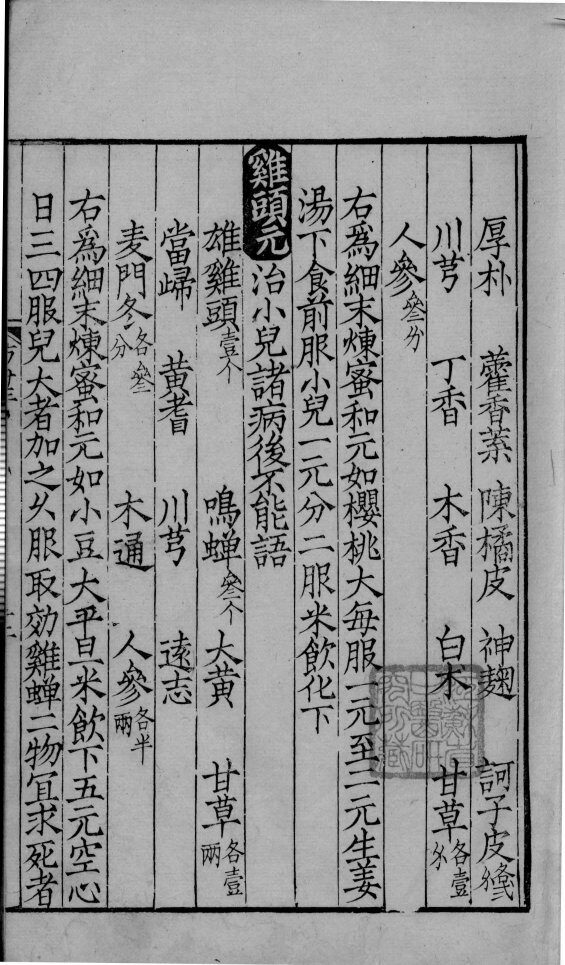 厚朴 藿香葉 陳橘皮 神麯 訶子皮
川芎 丁香 木香 白术 甘草各壹分
人參叄分
右爲細末煉蜜和元如櫻桃大每服一元至二元生姜
湯下食前服小兒一元分二服米飲化下
雞頭元 治小兒諸病後不能語
雄雞頭壹个 鳴蟬叄个 大黄 甘草各壹兩
當歸 黄耆 川芎 遠志
麦門冬各叄分 木通 人參各半兩
右爲細末煉蜜和元如小豆大平旦米飲下五元空心
日三四服兒大者加之久服取効雞蟬二物冝求死者